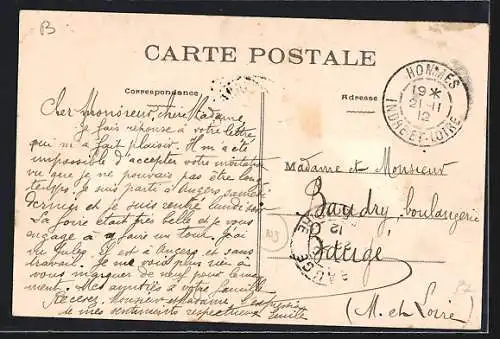 B
CARTE POSTALE
Correspondance
Adresse
HOMMES
19 *
21 - 11
12
INDRE-ET-LOIRE
Cher Monsieur, chère Madame,
Je fais réponse à votre lettre
qui m'a fait plaisir. Il m'a été
impossible d'accepter votre invitation
vu que je ne pouvais pas être long
temps. Je suis parti d'Angers samedi
dernier et je suis rentré lundi soir
La foire était très belle et je vous
engage à y faire un tour. J'ai
vu Jules. Il est à Angers et sans
travail. Je ne vous puis rien
vous marquer de neuf pour le mo
ment. Mes amitiés à votre famille
Recevez, Monsieur et Madame, l'expression
de mes sentiments respectueux Emile
Madame et Monsieur
Baudry, boulangerie
(M. et Loire)